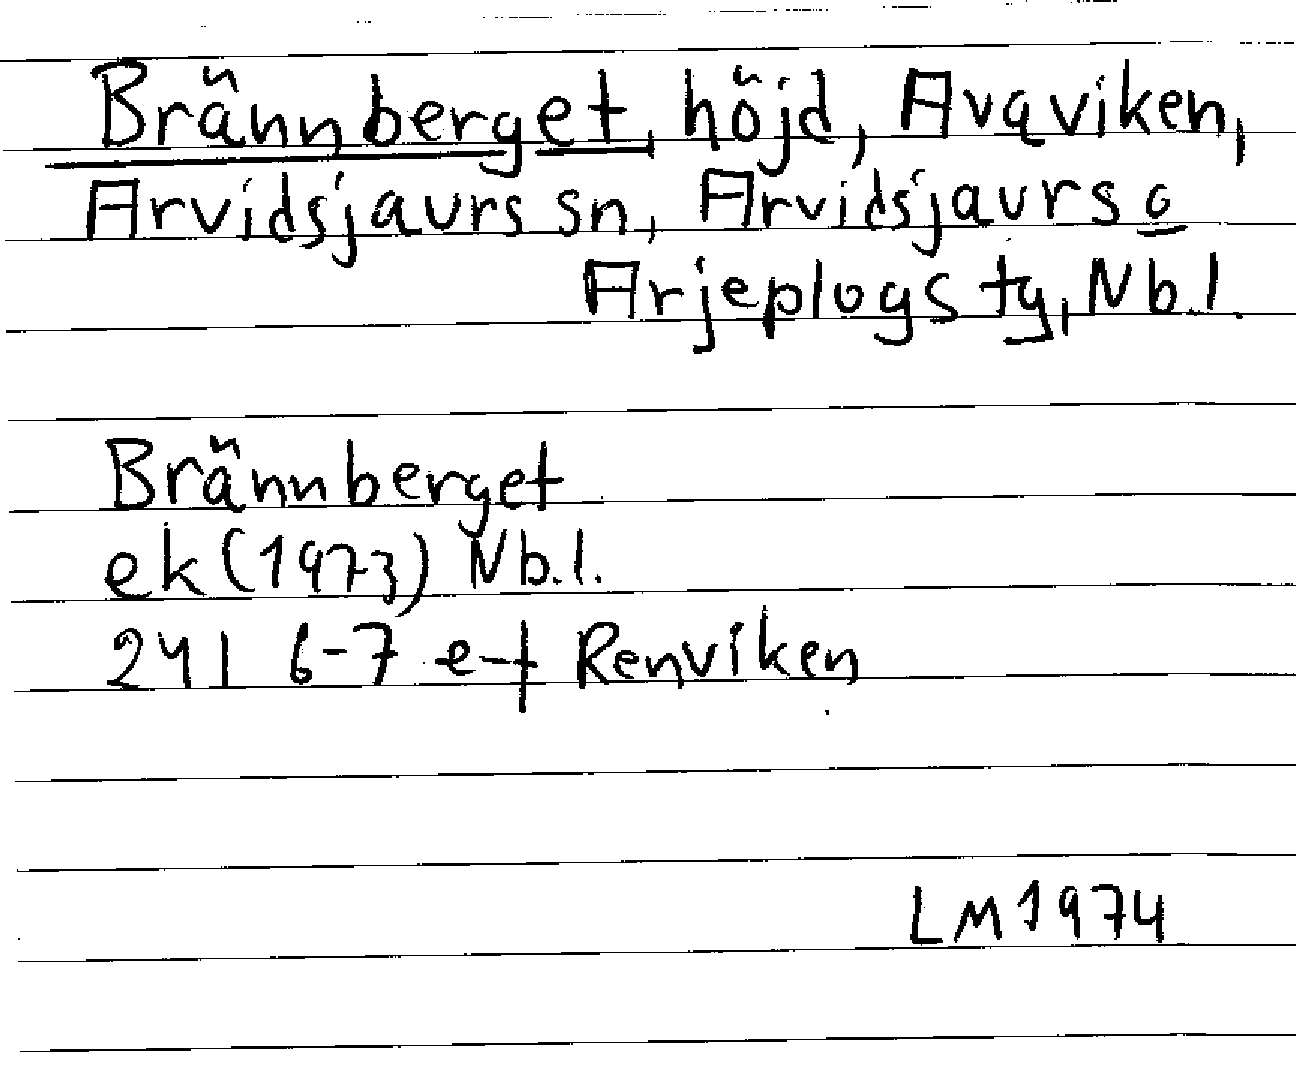 Brännberget, höjd, Avaviken,
Arvidsjaurs sn, Arvidsjaurs o
Arjeplogs tg, Nb.l.
Brännberget
ek (1973) Nb.l.
24I 6-7 e-f Renviken
LM 1974